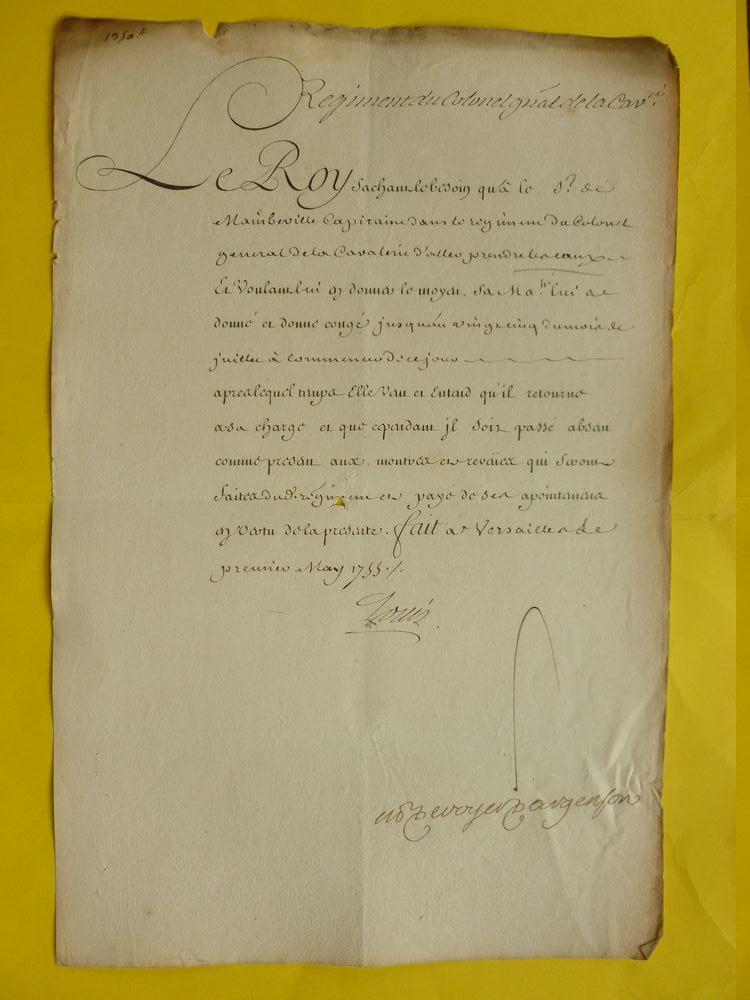 1350.
Regiment du Colonel gñal de la Cav.rie
Le Roy Sachant le besoin qu'a le S.r de
Mainbeville Capitaine dans le regiment du Colonel
general de la Cavalerie d'aller prendre les eaux
Et Voulant lui en donner le moyen, Sa Ma.té lui a
donné et donne congé jusqu'au vingt cinq du mois de
juillet à commencer de ce jour
apres lequel temps Elle Veut et Entend qu'il retourne
a sa charge et que cependant jl soit passé absent
comme present aux montres et reveües qui seront
faites dud. régiment et payé de ses apointemens
en vertu de la presente. fait a Versailles le
premier May 1755 ./.
Louis
de voyer d'argenson